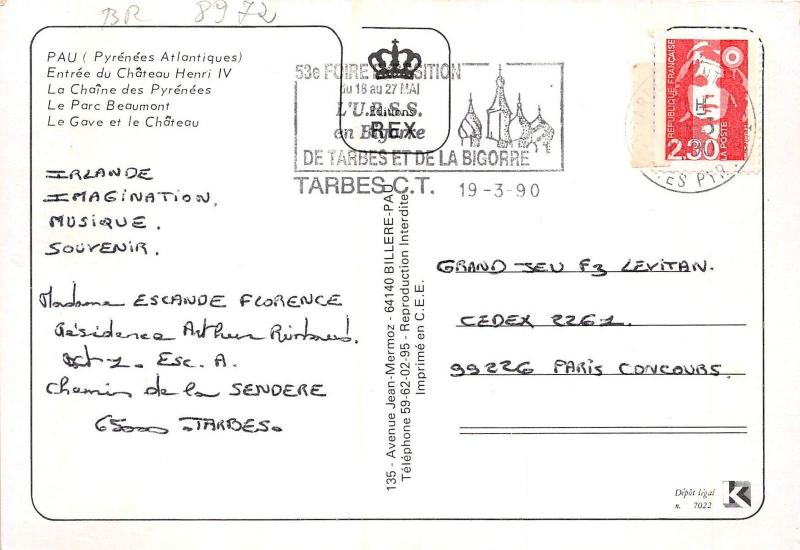 BR 8972
PAU ( Pyrénées Atlantiques)
Entrée du Château Henri IV
La Chaîne des Pyrénées
Le Parc Beaumont
Le Gave et le Château
53e FOIRE EXPOSITION
du 18 au 27 MAI
L'U.R.S.S.
en Bigorre
DE TARBES ET DE LA BIGORRE
TARBES C.T. 19-3-90
Editions
REX
REPUBLIQUE FRANÇAISE
LA POSTE
2,30
IRLANDE
IMAGINATION,
MUSIQUE.
SOUVENIR.
Madame ESCANDE FLORENCE
Résidence Arthur Rimbaud.
1. Esc. A.
Chemin de la SENDERE
65000 TARBES.
135 - Avenue Jean-Mermoz - 64140 BILLERE-PAU
Téléphone 59-62-02-95 - Reproduction Interdite
Imprimé en C.E.E.
GRAND JEU F3 LEVITAN.
CEDEX 2261.
99226 PARIS CONCOURS.
Dépôt légal
n. 7022
K